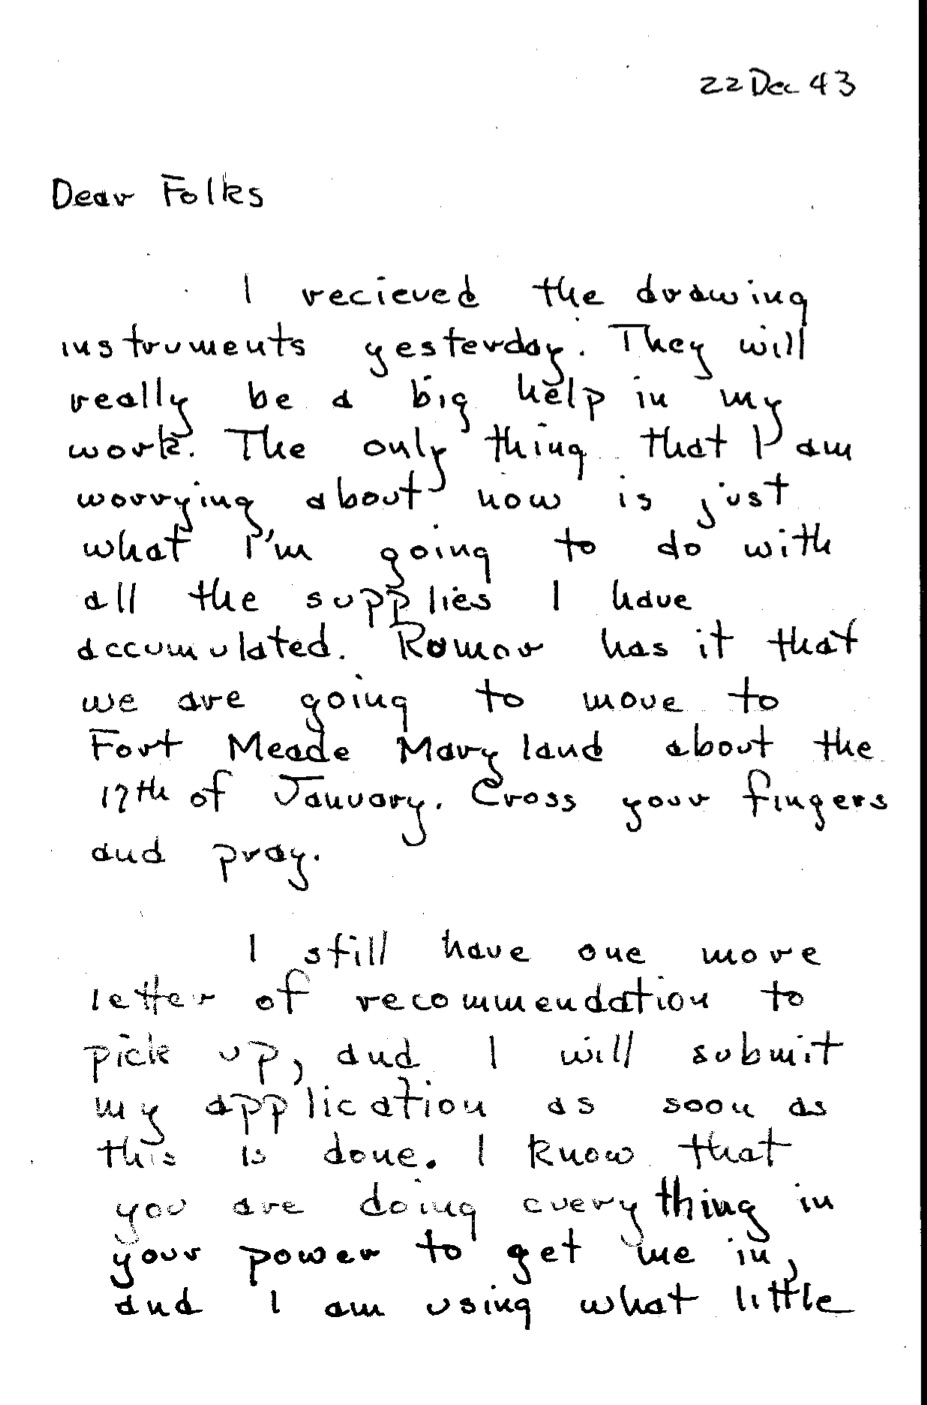 22 Dec 43
Dear Folks
I recieved the drawing
instruments yesterday. They will
really be a big help in my
work. The only thing that I am
worrying about now is just
what I'm going to do with
all the supplies I have
accumulated. Romor has it that
we are going to move to
Fort Meade Maryland about the
17th of January. Cross your fingers
and pray.
I still have one more
letter of recommendation to
pick up, and I will submit
my application as soon as
this is done. I know that
you are doing everything in
your power to get me in,
and I am using what little